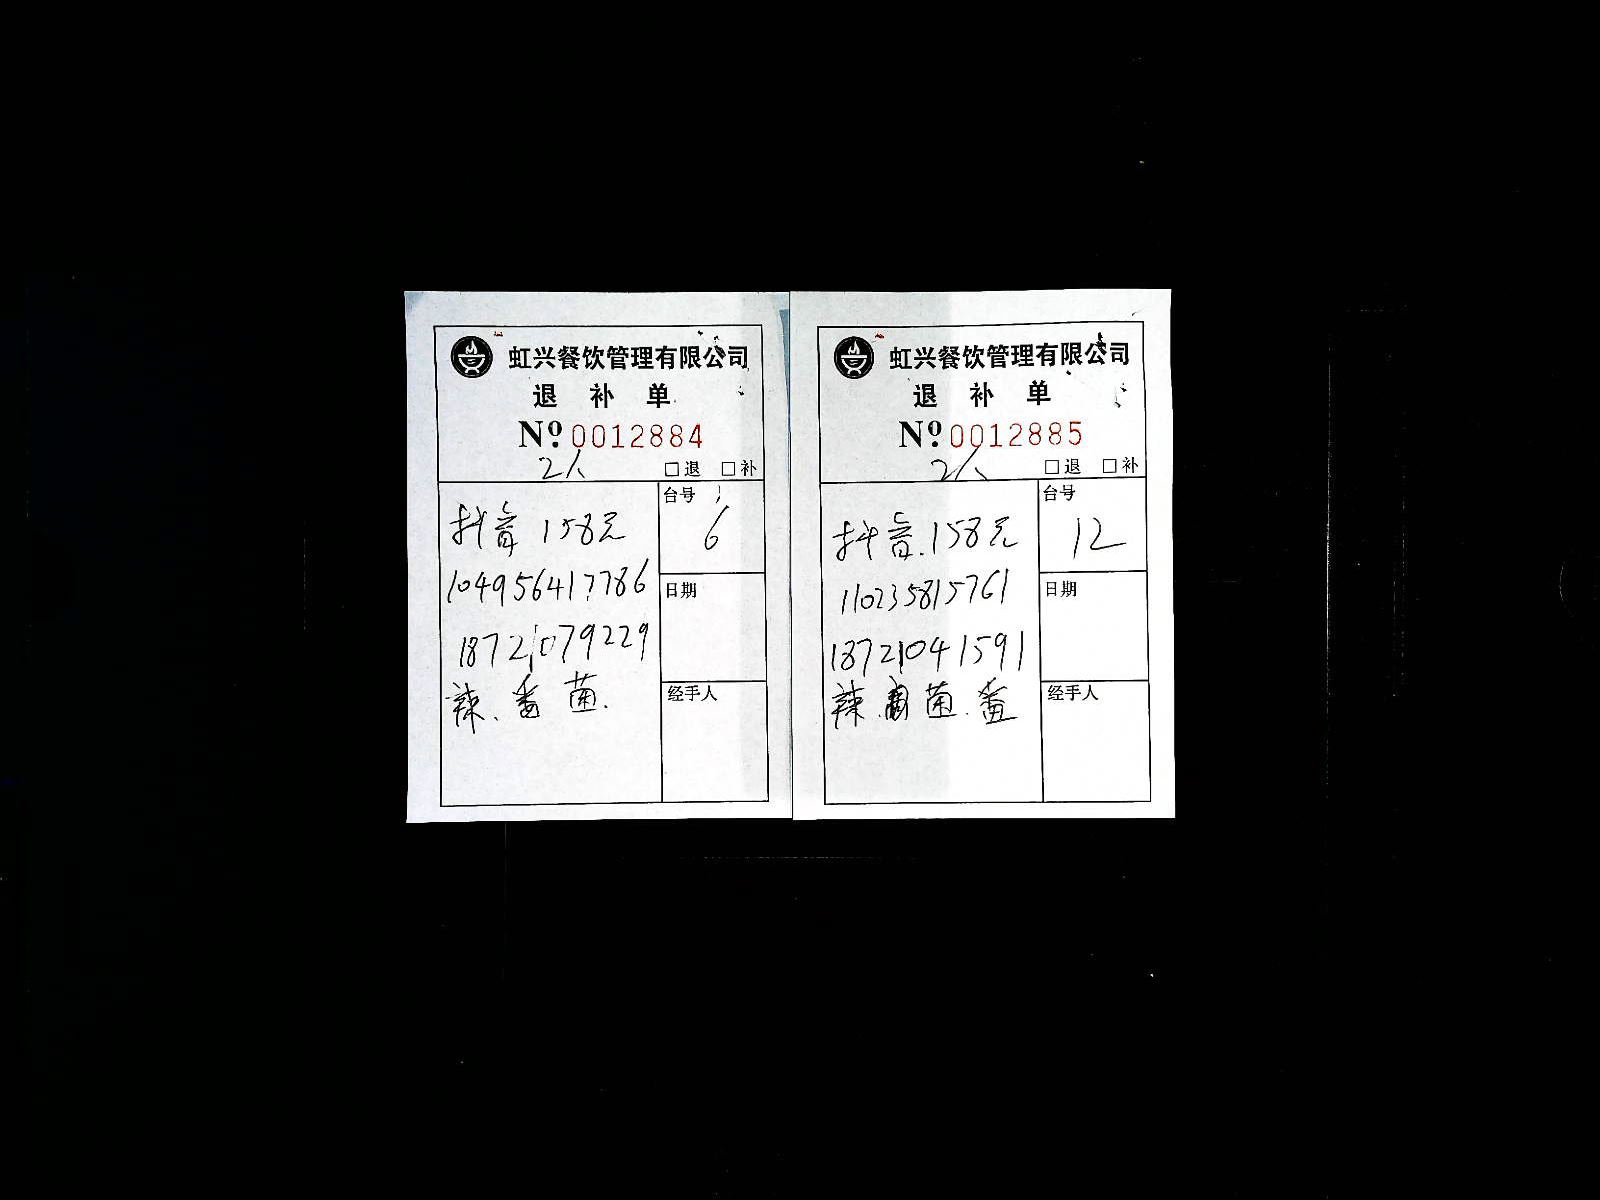 虹兴餐饮管理有限公司
退 补 单
Nº:0012884
2人 □退 □补
台号
6
抖音 158元
104956417786
18721079229
辣.番 菌.
日期
经手人
虹兴餐饮管理有限公司
退 补 单
Nº:0012885
2人 □退 □补
台号
12
抖音.158元
110235815761
18721041591
辣. 菌.番
日期
经手人